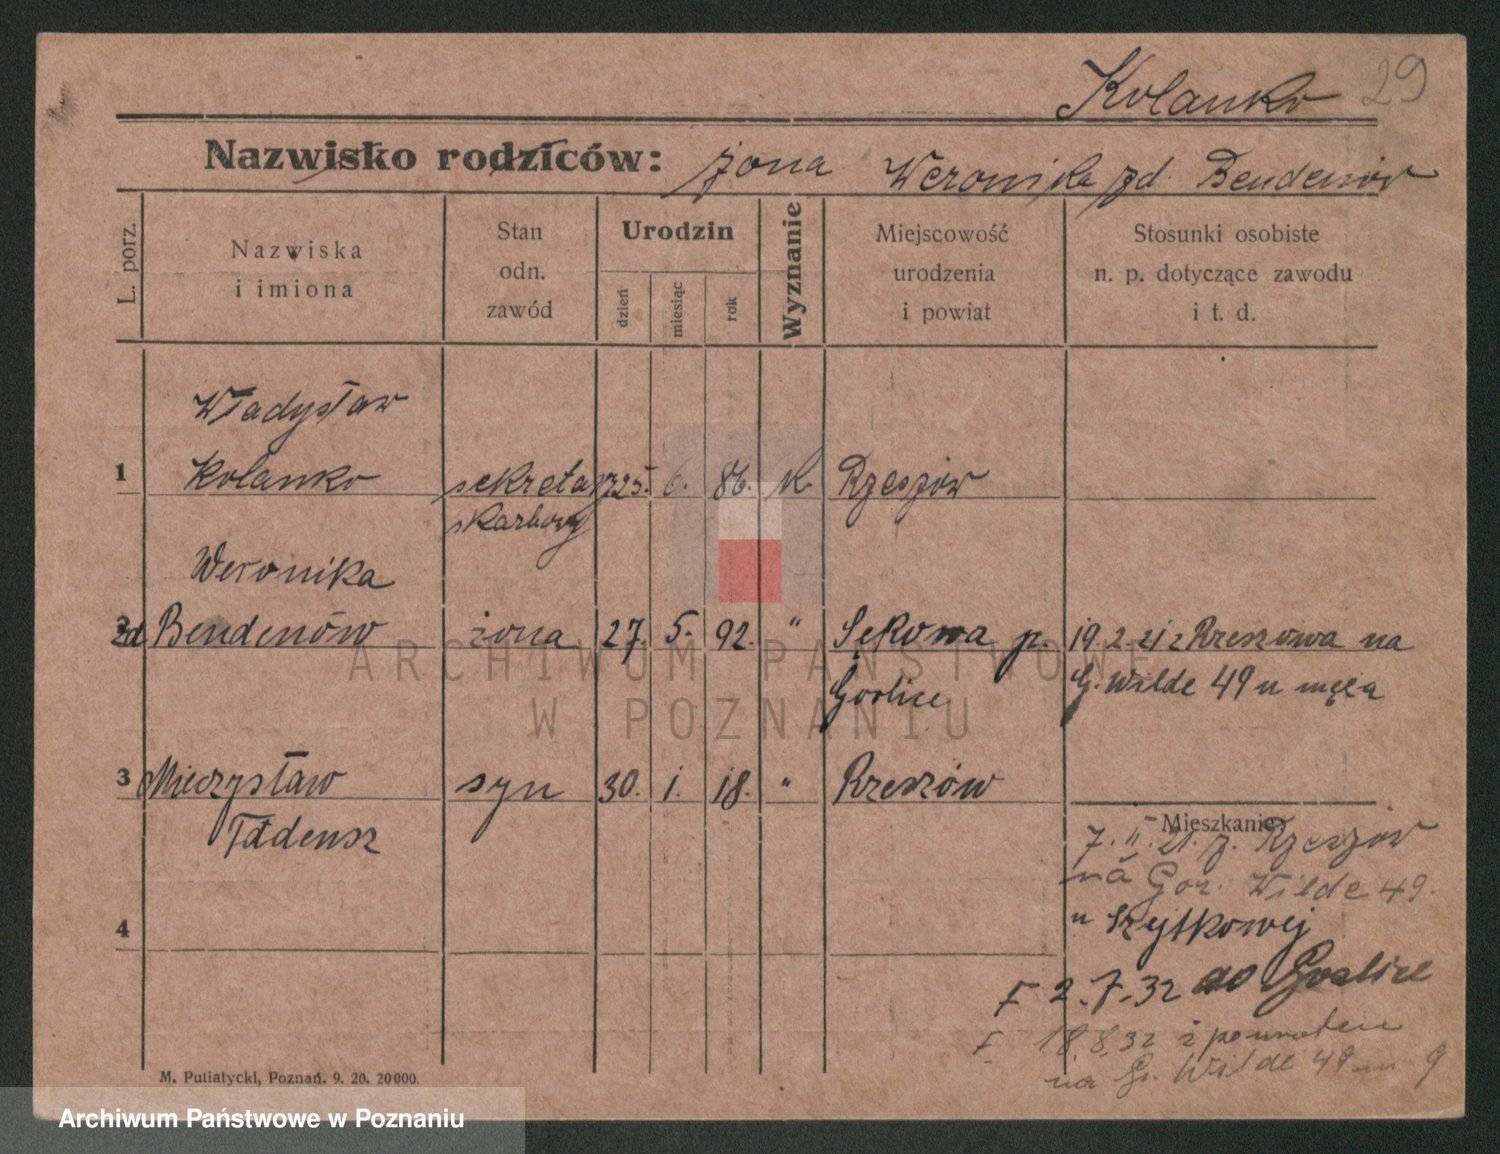 Kolanko 29
Nazwisko rodziców: żona Weronika zd. Bendenów
L. porz.
Nazwiska
i imiona
Stan
odn.
zawód
Urodzin
dzień
miesiąc
rok
Wyznanie
Miejscowość
urodzenia
i powiat
Stosunki osobiste
n. p. dotyczące zawodu
i t. d.
Władysław
1 Kolanko sekretarz 25. 6. 86. k. Rzeszów
skarbowy
Weronika
2 zd Bendenów żona 27. 5. 92. " Sękowa p. 19.2.21 z Rzeszowa na
Gorlice G. Wilde 49 u męża
3 Mieczysław syn 30. 1. 18. " Rzeszów
Tadeusz
Mieszkanie
7. II. 21. z. Rzeszów
na Gor. Wilde 49.
4 u Szytkowej
F 2.7.32 do Gorlice
F 18.8.32 z powrotem
na G. Wilde 49 m 9
M. Putiatycki, Poznań. 9. 20. 20000.
ARCHIWUM PAŃSTWOWE
W POZNANIU
Archiwum Państwowe w Poznaniu